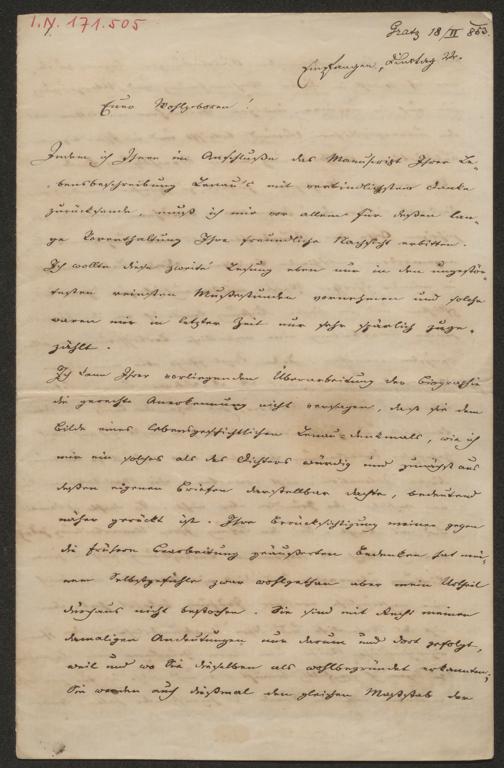 I.N. 171.505
Gratz 18/II 853.
Empfangen, Dinstag 22.
Euer Wohlgeboren!
Indem ich Ihnen im Anschluße das Manuscript Ihrer Le-
bensbeschreibung Lenau's mit verbindlichstem Danke
zurücksende, muß ich mir vor allem für deßen lan-
ge Vorenthaltung Ihre freundliche Nachsicht erbitten.
Ich wollte diese zweite Lesung eben nur in den ungestör-
testen reinsten Mußestunden vornehmen und solche
waren mir in letzter Zeit nur sehr spärlich zuge-
zählt.
Ich kann Ihrer vorliegenden Überarbeitung der Biographie
die gerechte Anerkennung nicht versagen, daß sie dem
Bilde eines lebensgeschichtlichen Lenau-denkmals, wie ich
mir ein solches als des Dichters würdig und zunächst aus
deßen eigenen Briefen darstellbar dachte, bedeutend
näher gerückt ist. Ihre Berücksichtigung meiner gegen
die frühere Bearbeitung geäußerten Bedenken hat mei-
nem Selbstgefühle zwar wohlgethan aber mein Urtheil
durchaus nicht bestochen. Sie sind mit Recht meinen
damaligen Andeutungen nur darum und dort gefolgt,
weil und wo Sie dieselben als wohlbegründet erkannten;
Sie werden auch dießmal den gleichen Maßstab der